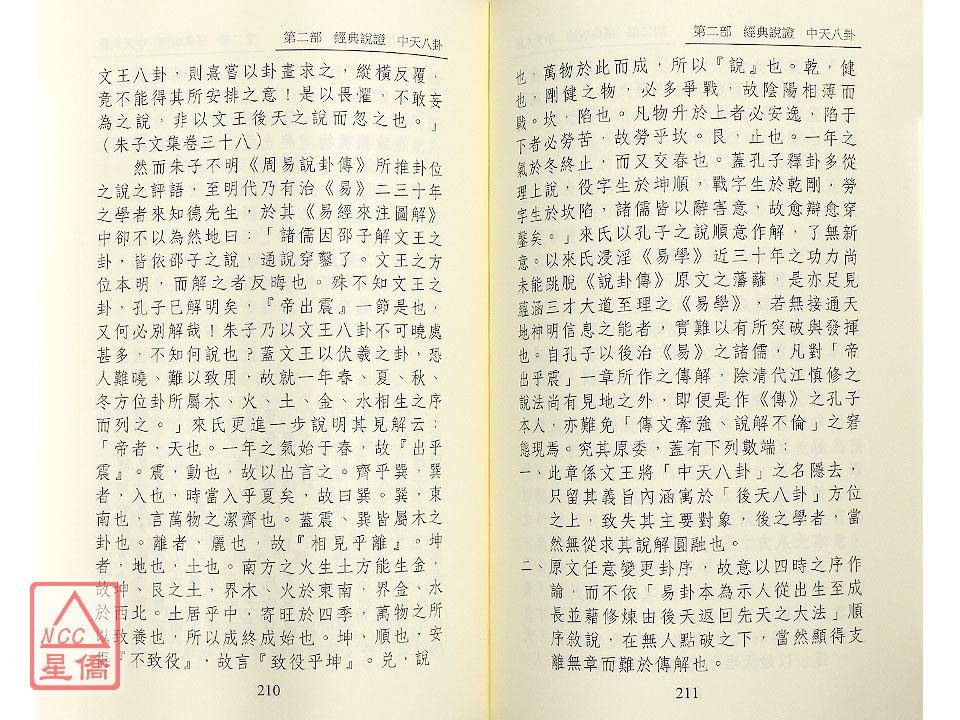 第二部　經典說證　中天八卦
文王八卦，則熹嘗以卦畫求之，縱橫反覆，
竟不能得其所安排之意！是以畏懼，不敢妄
為之說，非以文王後天之說而忽之也。」
（朱子文集卷三十八）
然而朱子不明《周易說卦傳》所推卦位
之說之評語，至明代乃有治《易》二三十年
之學者來知德先生，於其《易經來注圖解》
中卻不以為然地曰：「諸儒因邵子解文王之
卦，皆依邵子之說，通說穿鑿了。文王之方
位本明，而解之者反晦也。殊不知文王之
卦，孔子已解明矣，『帝出震』一節是也，
又何必別解哉！朱子乃以文王八卦不可曉處
甚多，不知何說也？蓋文王以伏羲之卦，恐
人難曉、難以致用，故就一年春、夏、秋、
冬方位卦所屬木、火、土、金、水相生之序
而列之。」來氏更進一步說明其見解云：
「帝者，天也。一年之氣始于春，故『出乎
震』。震，動也，故以出言之。齊乎巽，巽
者，入也，時當入乎夏矣，故曰巽。巽，東
南也，言萬物之潔齊也。蓋震、巽皆屬木之
卦也。離者，麗也，故『相見乎離』。坤
者，地也，土也。南方之火生土方能生金，
故坤、艮之土，界木、火於東南，界金、水
於西北。土居乎中，寄旺於四季，萬物之所
以致養也，所以成終成始也。坤，順也，安
得『不致役』，故言『致役乎坤』。兌，說
210
第二部　經典說證　中天八卦
也，萬物於此而成，所以『說』也。乾，健
也，剛健之物，必多爭戰，故陰陽相薄而
戰。坎，陷也。凡物升於上者必安逸，陷于
下者必勞苦，故勞乎坎。艮，止也。一年之
氣於冬終止，而又交春也。蓋孔子釋卦多從
理上說，役字生於坤順，戰字生於乾剛，勞
字生於坎陷，諸儒皆以辭害意，故愈辯愈穿
鑿矣。」來氏以孔子之說順意作解，了無新
意。以來氏浸淫《易學》近三十年之功力尚
未能跳脫《說卦傳》原文之藩蘺，是亦足見
蘊涵三才大道至理之《易學》，若無接通天
地神明信息之能者，實難以有所突破與發揮
也。自孔子以後治《易》之諸儒，凡對「帝
出乎震」一章所作之傳解，除清代江慎修之
說法尚有見地之外，即便是作《傳》之孔子
本人，亦難免「傳文牽強、說解不倫」之窘
態現焉。究其原委，蓋有下列數端：
一、此章係文王將「中天八卦」之名隱去，
只留其義旨內涵寓於「後天八卦」方位
之上，致失其主要對象，後之學者，當
然無從求其說解圓融也。
二、原文任意變更卦序，故意以四時之序作
論，而不依「易卦本為示人從出生至成
長並藉修煉由後天返回先天之大法」順
序敘說，在無人點破之下，當然顯得支
離無章而難於傳解也。
211
NCC
星僑